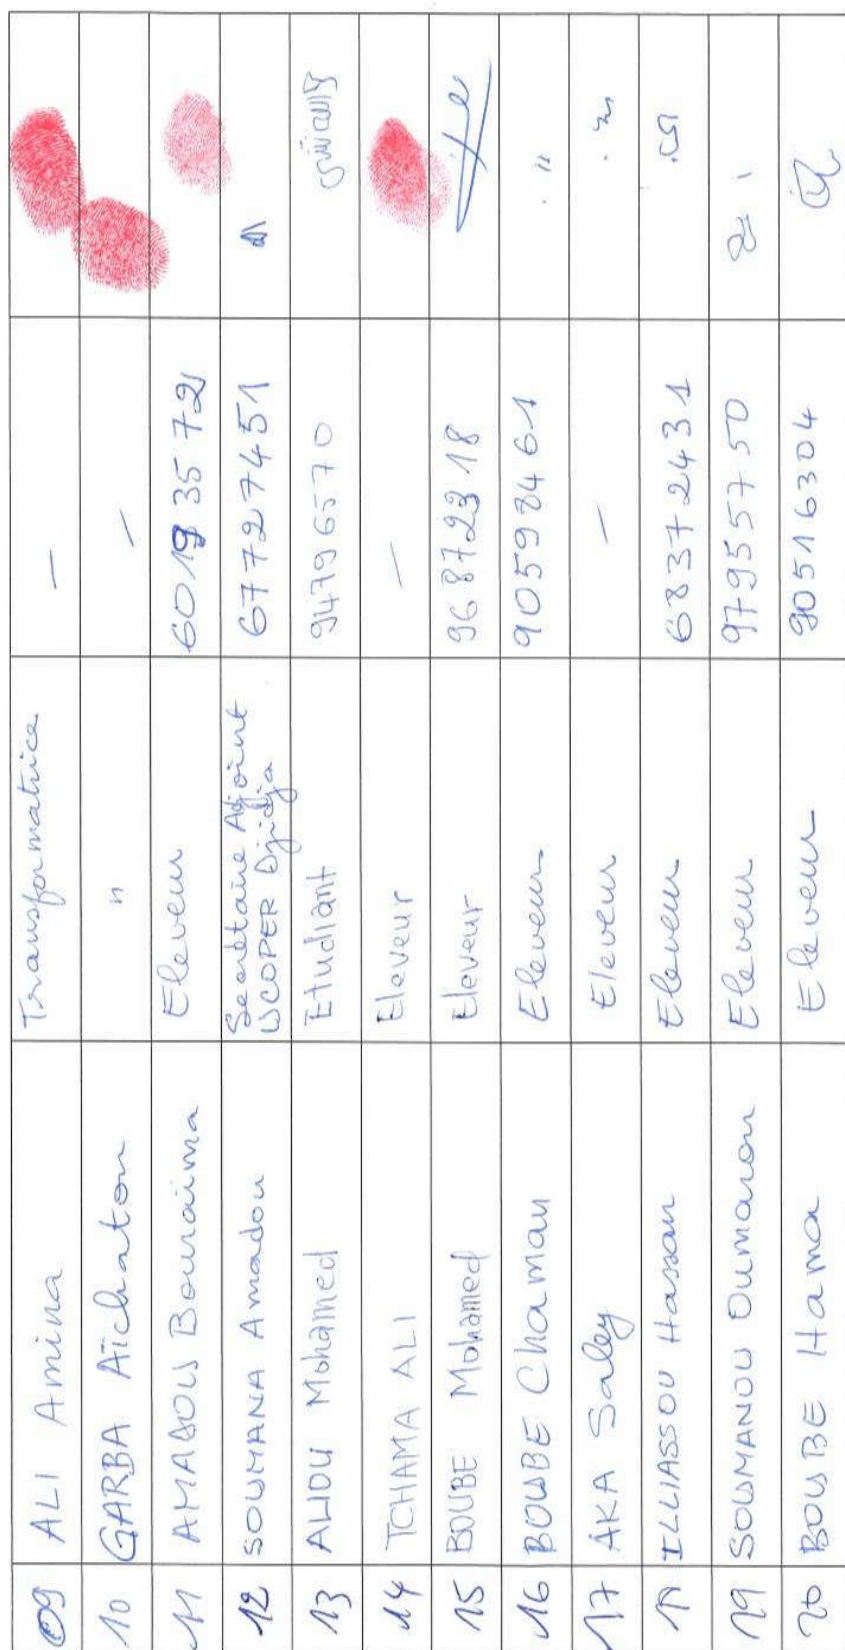 09 ALI Amina Transformatrice —
10 GARBA Aïchatou " —
11 AMADOU Bouraima Eleveur 60193572
12 SOUMANA Amadou Secrétaire Adjoint 67727451
USCOPER Djidja
13 ALIOU Mohamed Etudiant 94796570
14 TCHAMA ALI Eleveur —
15 BOUBE Mohamed Eleveur 96872318
16 BOUBE Chaman Eleveur 90598461
17 AKA Saley Eleveur —
ILLIASSOU Hassan Eleveur 68372431
19 SOUMANOU Oumarou Eleveur 97955750
20 BOUBE Hama Eleveur 90516304